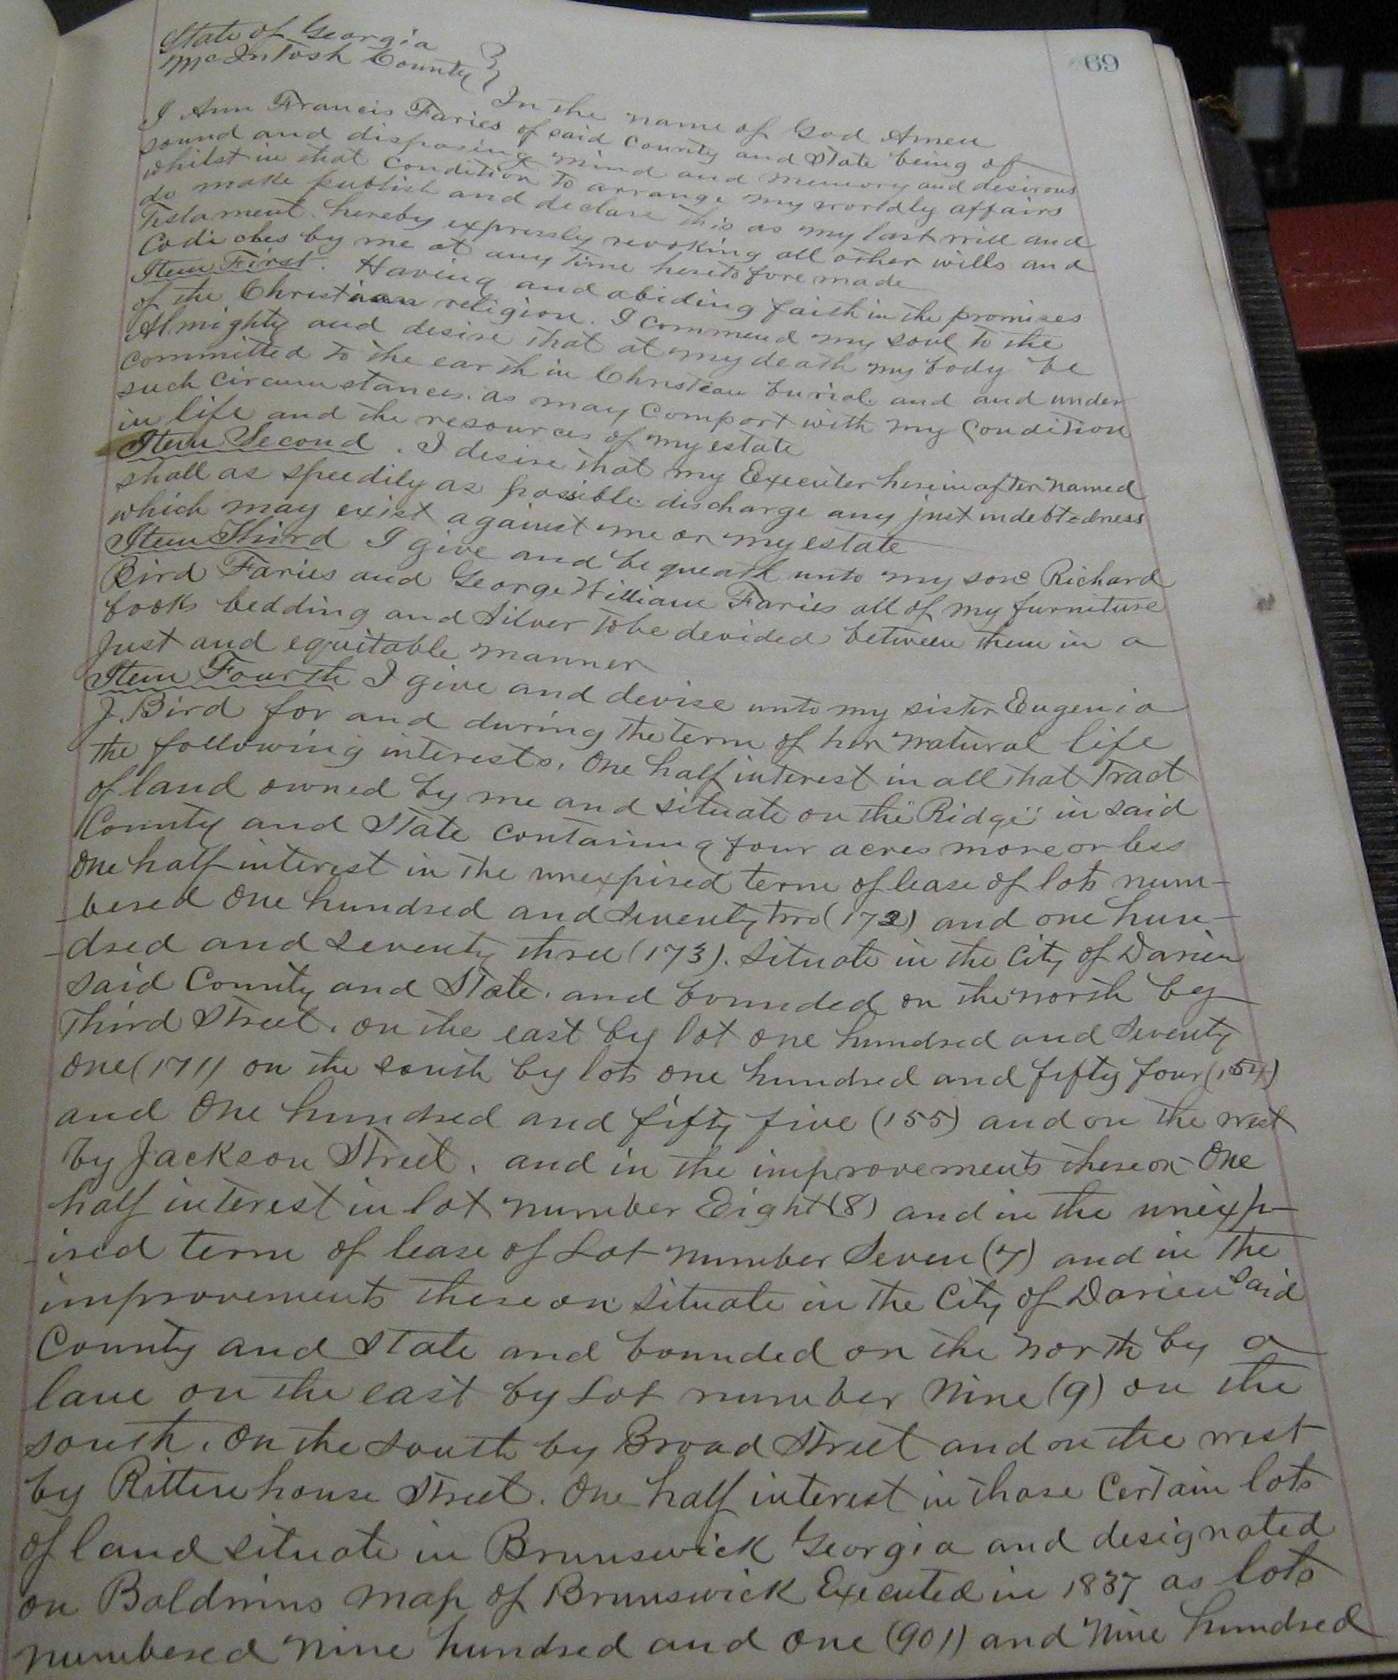 69
State of Georgia
McIntosh County
In the name of God Amen
I Ann Francis Faries of said County and State being of
sound and disposing mind and memory and desirous
whilst in that Condition to arrange my worldly affairs
do make publish and declare this as my last will and
Testament. hereby expressly revoking all other wills and
by me at any time heretofore made
Item First. Having and abiding faith in the promises
of the Christian religion. I commend my soul to the
Almighty and desire that at my death my body be
committed to the earth in Christian burial and and under
such circumstances. as may comport with my Condition
in life and the resources of my estate
Item Second. I desire that my Executer hereinafter named
shall as speedily as possible discharge any just indebtedness
which may exist against me or my estate
Item Third I give and bequeath unto my sons Richard
Bird Faries and George William Faries all of my furniture
books bedding and Silver to be devided between them in a
Just and equitable manner
Item Fourth I give and devise unto my sister Eugenia
J. Bird for and during the term of her natural life
the following interests. One half interest in all that Tract
of land owned by me and situate on the "Ridge" in said
County and State containing four acres more or less
One half interest in the unexpired term of lease of lots num-
-bered One hundred and Seventy two (172) and one hun-
-dred and seventy three (173). situate in the City of Darien
said County and State. and bounded on the north by
Third Street. on the east by lot one hundred and Seventy
one (171) on the south by lots one hundred and fifty four (154)
and One hundred and fifty five (155) and on the west
by Jackson Street. and in the improvements thereon One
half interest in lot number Eight (8) and in the unexp-
-ired term of lease of Lot number Seven (7) and in the
improvements thereon situate in the City of Darien said
County and State and bounded on the north by a
lane on the east by Lot number Nine (9) on the
south. On the south by Broad Street and on the west
by Rittenhouse Street. One half interest in those Certain lots
of land situate in Brunswick Georgia and designated
on Baldwins map of Brunswick Executed in 1837 as lots
numbered Nine hundred and one (901) and Nine hundred